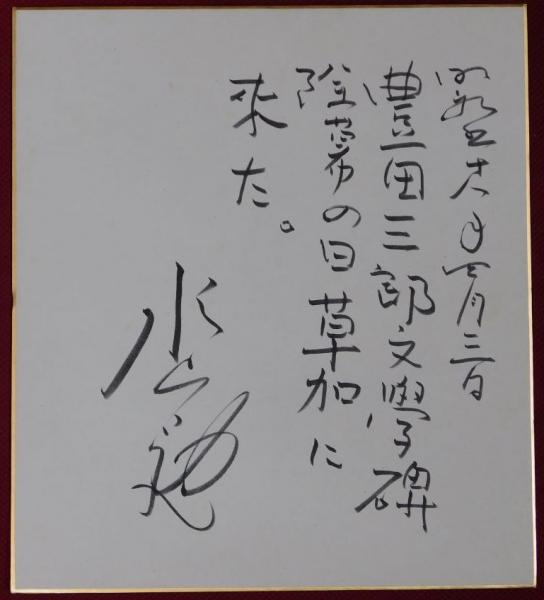 昭和五十八年七月三日
豊田三郎文學碑
除幕の日草加に
来た。
水上勉